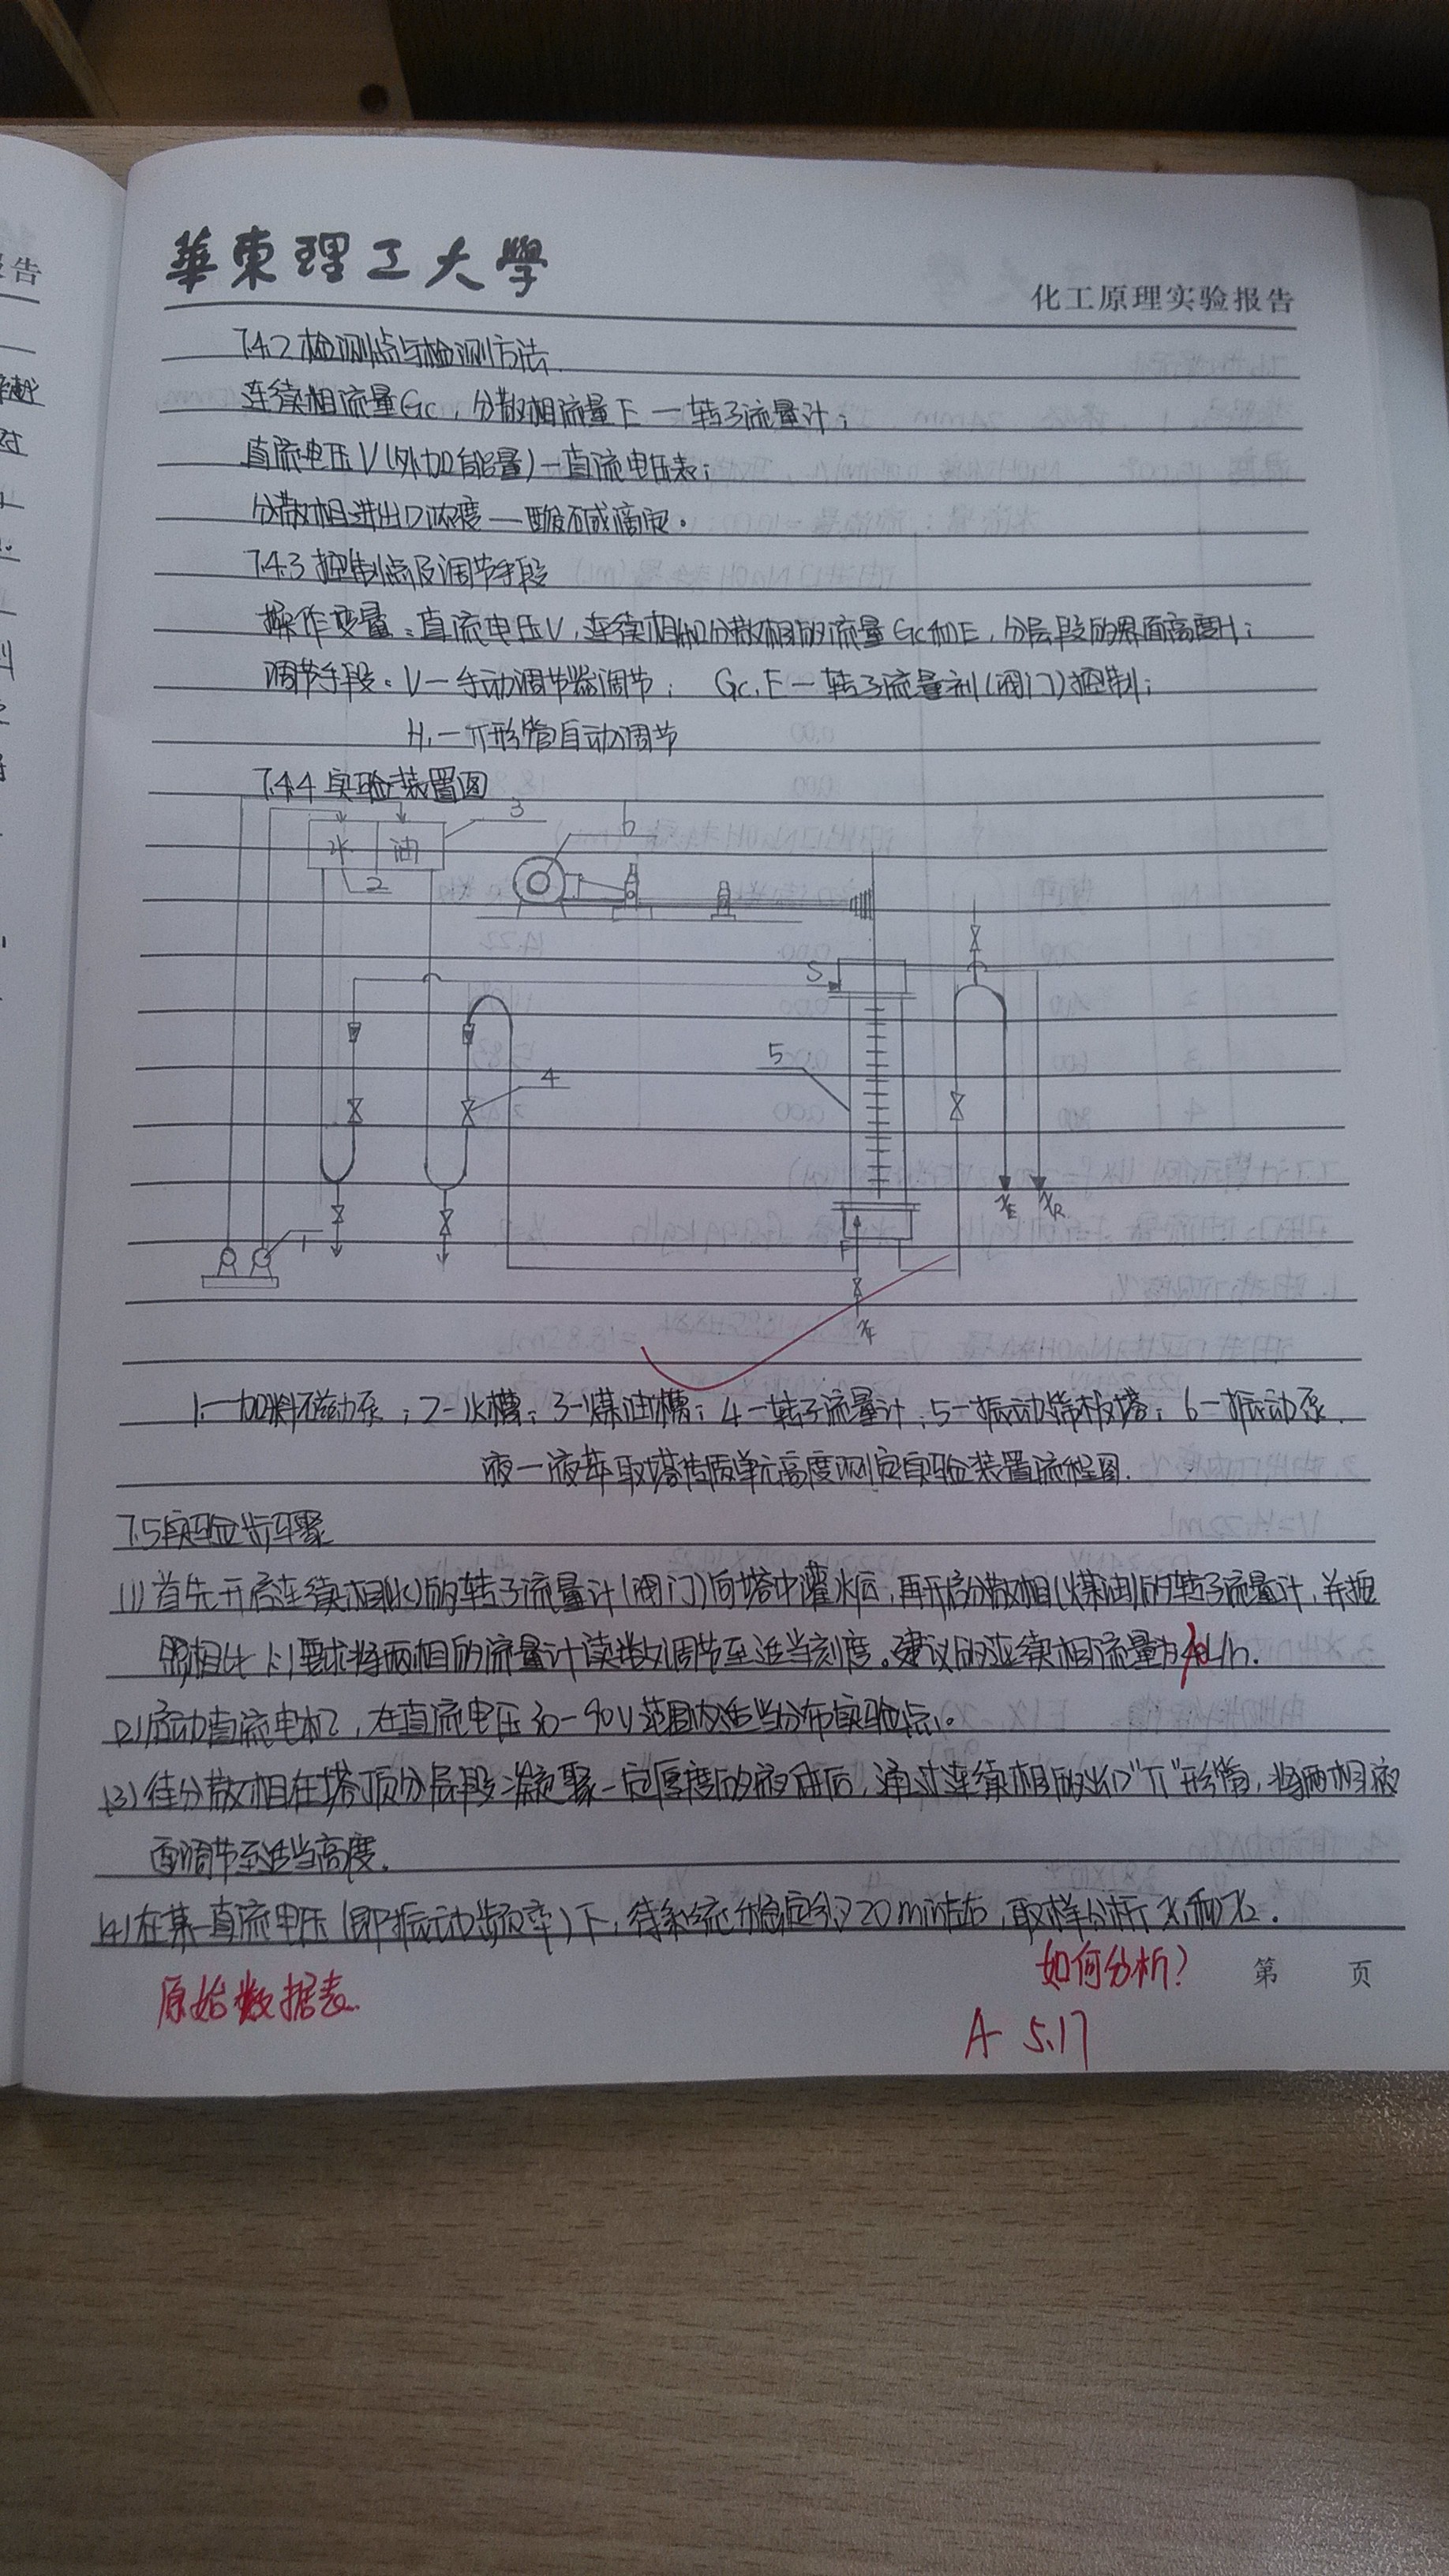 華東理工大學
化工原理实验报告
7.4.2 检测点与检测方法
连续相流量Gc，分散相流量E — 转子流量计；
直流电压V(外加能量)—直流电压表；
分散相进出口浓度 — 酸碱滴定。
7.4.3 控制点及调节手段
操作变量：直流电压V，连续相和分散相的流量Gc和E，分层段的界面高度H；
调节手段：V — 手动调节器调节； Gc、E — 转子流量计(阀门)控制；
H — π形管自动调节
7.4.4 实验装置图
水 油 3 6
2
S
5
4
1
F
1—加料磁力泵；2—水槽；3—煤油槽；4—转子流量计；5—振动筛板塔；6—振动泵
液—液萃取塔传质单元高度测定实验装置流程图.
7.5 实验步骤
(1) 首先开启连续相(水)的转子流量计(阀门)向塔中灌水后，再开启分散相(煤油)的转子流量计，并按
照相比1:1要求将两相的流量计读数调节至适当刻度。建议的连续相流量为 L/h.
(2) 启动直流电机，在直流电压30-90V范围内适当分布实验点。
(3) 待分散相在塔顶分层段凝聚一定厚度的液体后，通过连续相的出口"π"形管，将两相液
面调节至适当高度.
(4) 在某一直流电压(即振动频率)下，待系统稳定约20min左右，取样分析
如何分析?
第 页
原始数据表
A- 5.17